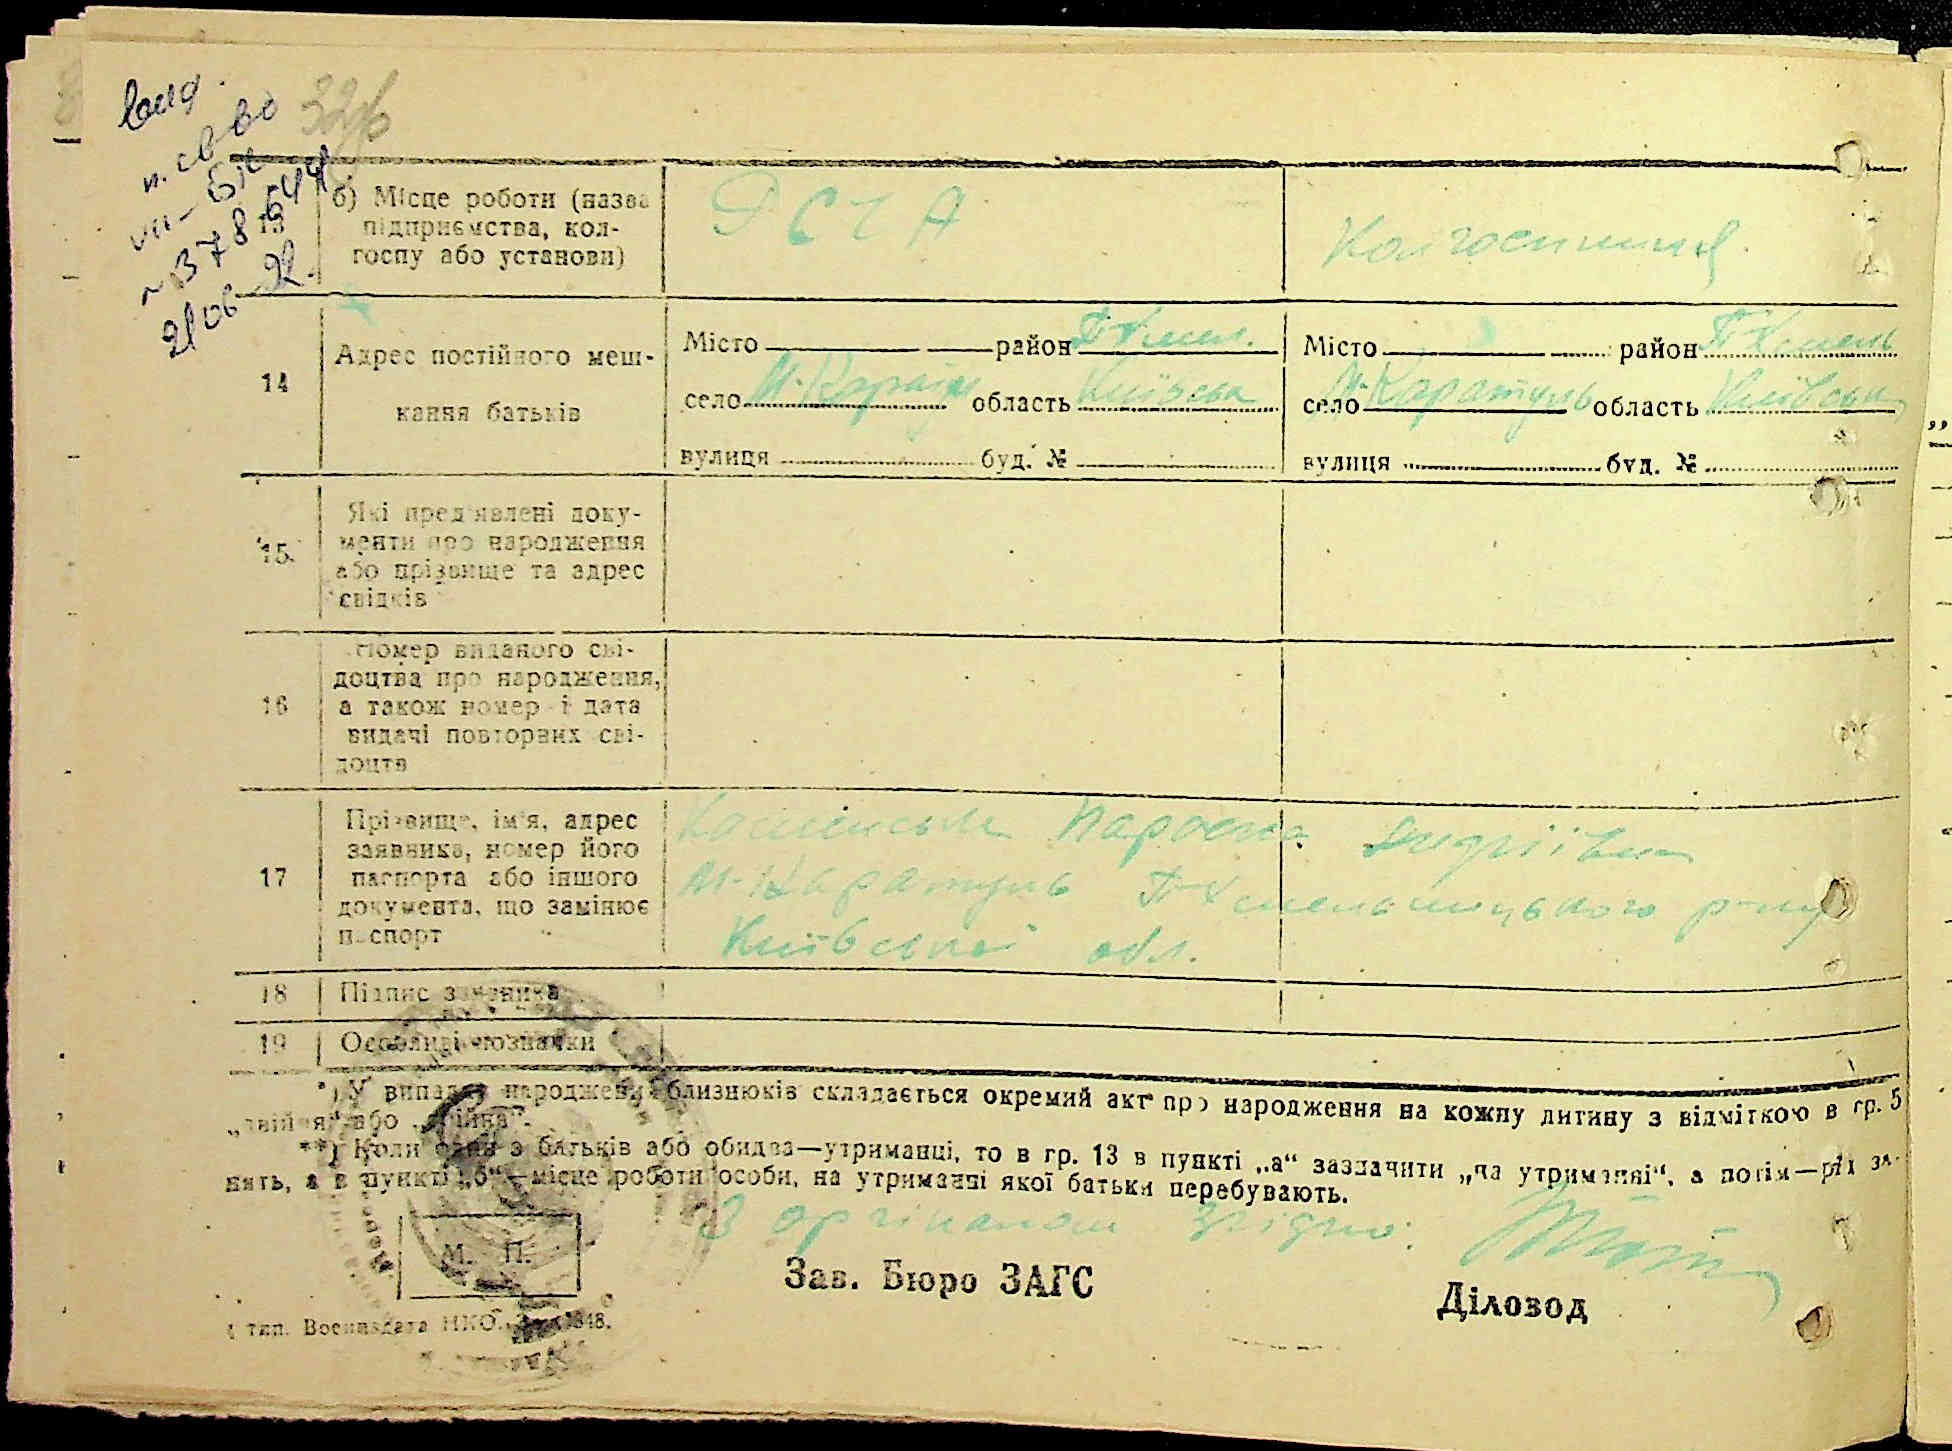 вид.
п. св во
VII-БК
378 644
21 06
13 б) Місце роботи (назва підприємства, колгоспу або установи)
РСЧА
Колгоспниця.
14 Адрес постійного мешкання батьків
Місто район П-Хмел.
село М-Каратул область Київська
вулиця буд. №
Місто район П-Хмель
село М-Каратуль область Київська
вулиця буд. №
15. Які пред'явлені доку-
менти про народження
або прізвище та адрес
свідків
16 Номер виданого сві-
доцтва про народження,
а також номер і дата
видачі повторних сві-
доцтв
17 Прізвище, ім'я, адрес
заявника, номер його
паспорта або іншого
документа, що замінює
паспорт
Параска Андріївна
М-Каратуль П-Хмельницького р-ну
Київської обл.
18 Підпис заявника
19 Особливі позначки
*) У випадку народження близнюків складається окремий акт про народження на кожну дитину з відміткою в гр. 5
„двійня“ або „трійня“.
**) Коли один з батьків або обидва—утриманці, то в гр. 13 в пункті „а“ зазначити „на утриманні“, а потім—рід за-
нять, а в пункті „б“—місце роботи особи, на утриманні якої батьки перебувають.
З оргіналом згідно:
М. П.
Зав. Бюро ЗАГС
Діловод
тип. Воениздата НКО.